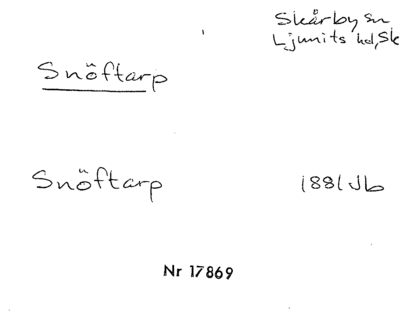 Skårby sn
Ljunits hd, Sk
Snöftarp
Snöftarp 1881 Jb
Nr 17869